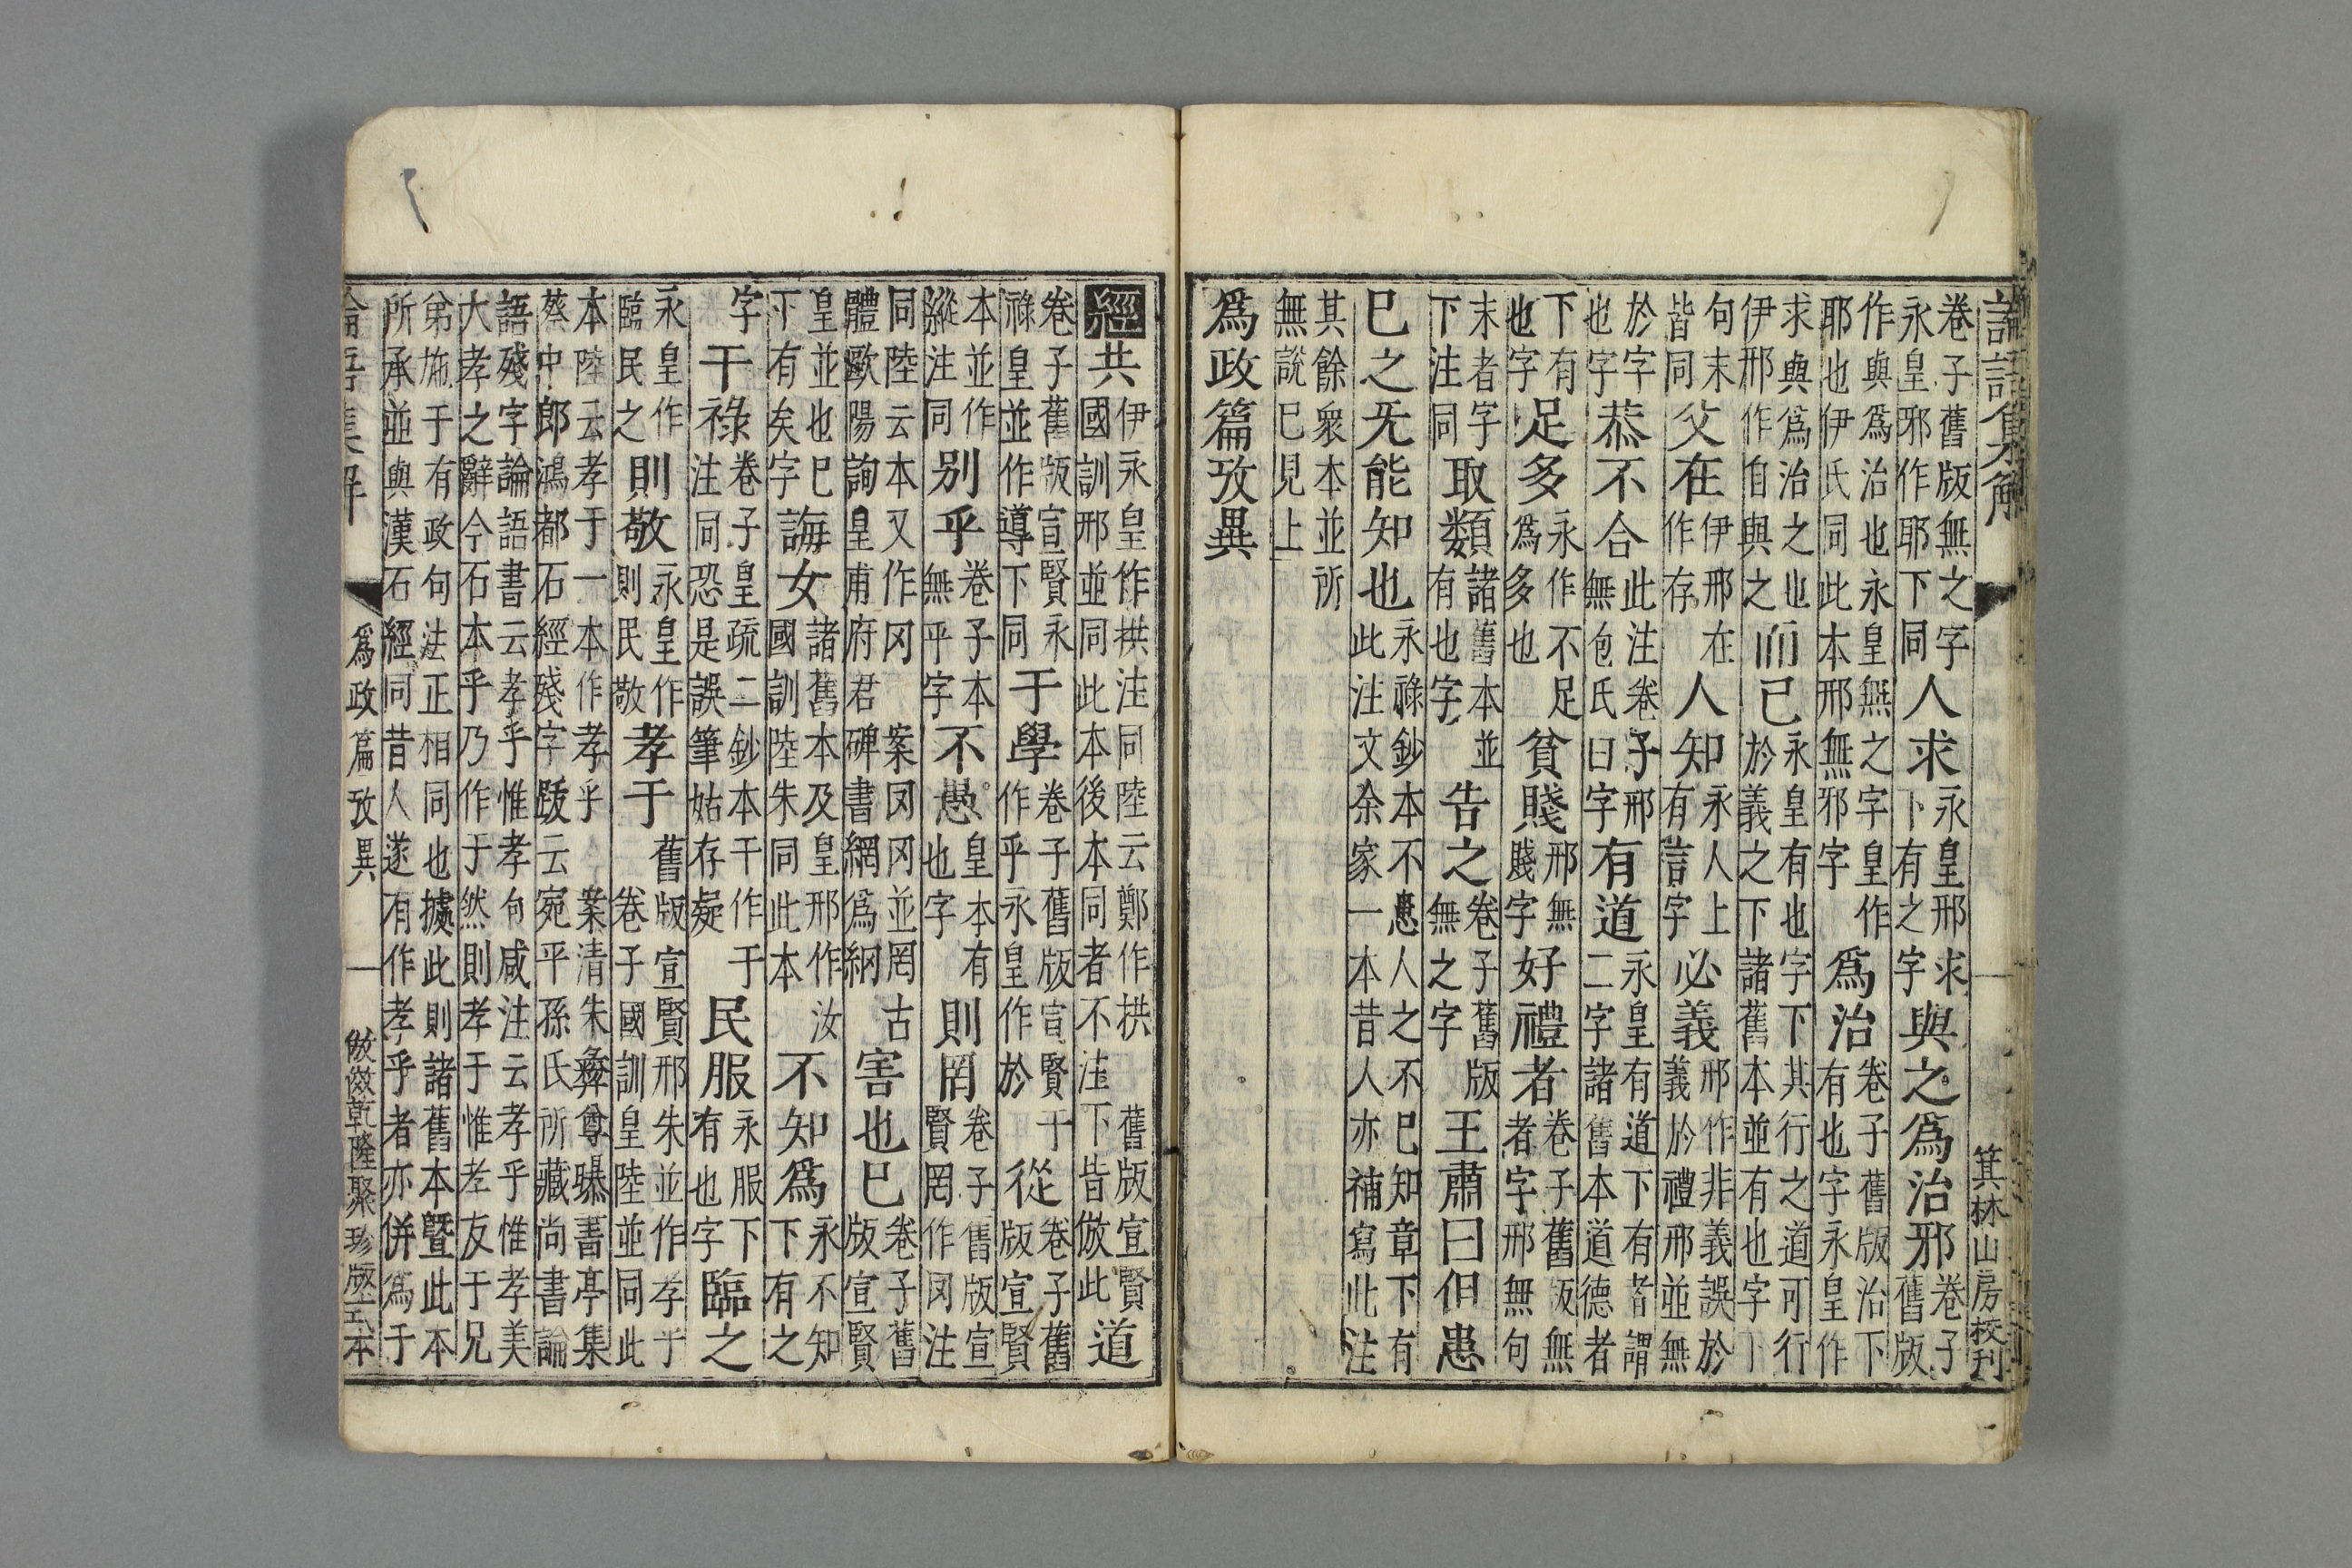 論語集解 一 箕林山房校刊
卷子舊版無之字永皇邪作耶下同人求永皇邢求下有之字與之爲治邪卷子舊版
作與爲治也永皇無之字皇作耶也伊氏同此本邢無邪字爲治卷子舊版治下有也字永皇作
求與爲治之也伊邢作自與之而已永皇有也字下其行之道可行於義之下諸舊本並有也字下
句末皆同父在伊邢在作存人知永人上有言字必義邢作非義誤於義於禮邢並無
於字也字恭不合此注卷子邢無包氏曰字有道永皇有道下有者謂二字諸舊本道德者
下有也字足多永作不足爲多也貧賤邢無賤字好禮者卷子舊版無者字邢無句
末者字下注同取類諸舊本並有也字告之卷子舊版無之字王肅曰但患
已之无能知也永祿鈔本不患人之不已知章下有此注文余家一本昔人亦補寫此注
其餘衆本並所無說已見上
爲政篇攷異
經共伊永皇作拱注同陸云鄭作拱國訓邢並同此本後本同者不注舊版宣賢下皆倣此道
卷子舊版宣賢永祿皇並作導下同于學卷子舊版宣賢于作乎永皇作於從卷子舊版宣賢
本並作縱注同别乎卷子本無乎字不愚皇本有也字則罔卷子舊版宣賢罔作冈注
同陸云本又作冈案冈冈並罔古體歐陽詢皇甫府君碑書網爲網害也已卷子舊版宣賢
皇並也已下有矣字誨女諸舊本及皇邢作汝國訓陸朱同此本不知爲永不知下有之
字干祿卷子皇疏二鈔本干作于注同恐是誤筆姑存疑民服永服下有也字臨之
永皇作臨民之則敬永皇作則民敬孝于舊版宣賢邢朱並作孝乎卷子國訓皇陸並同此
本陸云孝于一本作孝乎案清朱彝尊曝書亭集蔡中郎鴻都石經殘字跋云宛平孫氏所藏尚書論
語殘字論語書云孝乎惟孝句咸注云孝乎惟孝美大孝之辭今石本乎乃作于然則孝于惟孝友于兄
弟施于有政句法正相同也據此則諸舊本暨此本所承並與漢石經同昔人遂有作孝乎者亦併爲于
論語集解 爲政篇攷異 一 倣傚乾隆聚珍版式本